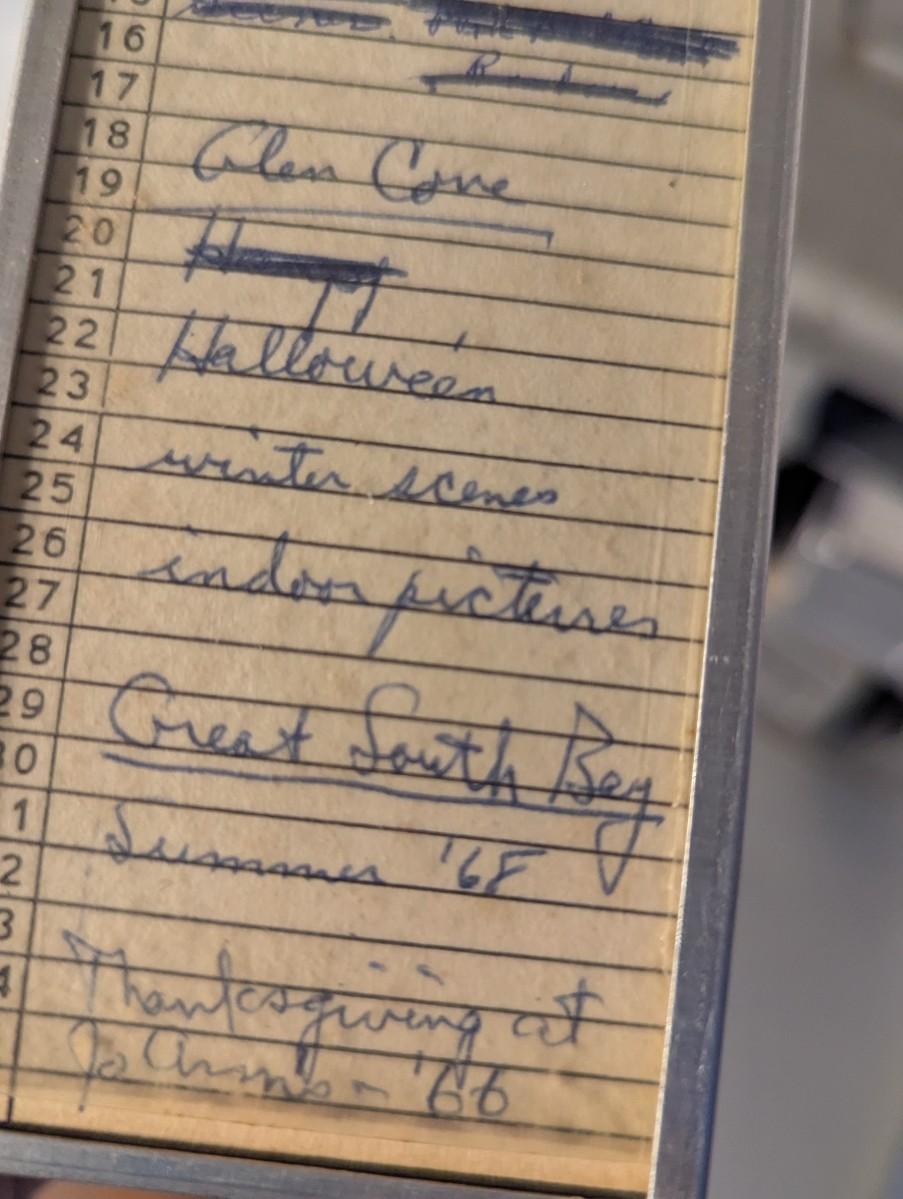 16
17
18
19 Glen Cove
20
21
22
23 Halloween
24
25 winter scenes
26
27 indoor pictures
28
29
30 Great South Bay
1
2 Summer '65
3
4 Thanksgiving at
Jo Ann's - '66